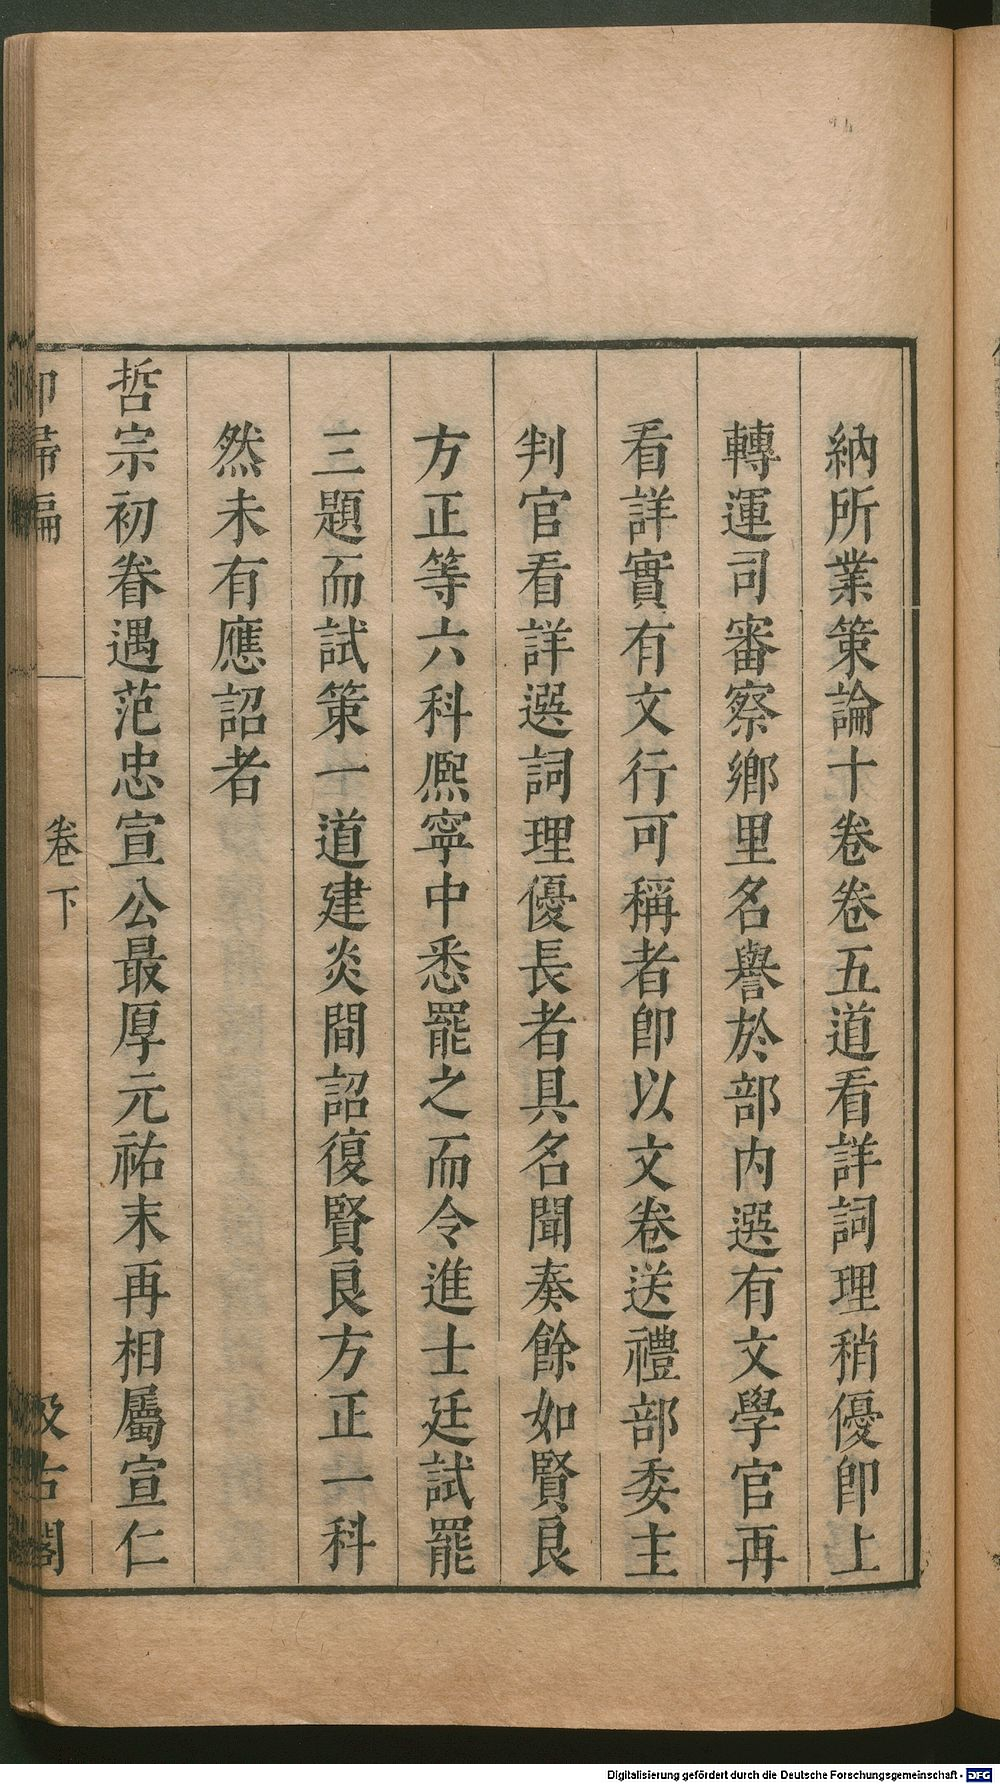 納所業策論十卷卷五道看詳詞理稍優卽上
轉運司審察鄉里名譽於部內選有文學官再
看詳實有文行可稱者卽以文卷送禮部委主
判官看詳選詞理優長者具名聞奏餘如賢良
方正等六科熈寧中悉罷之而令進士廷試罷
三題而試策一道建炎間詔復賢良方正一科
然未有應詔者
哲宗初眷遇范忠宣公最厚元祐末再相屬宣仁
卻埽編
卷下
汲古閣
Digitalisierung gefördert durch die Deutsche Forschungsgemeinschaft - DFG